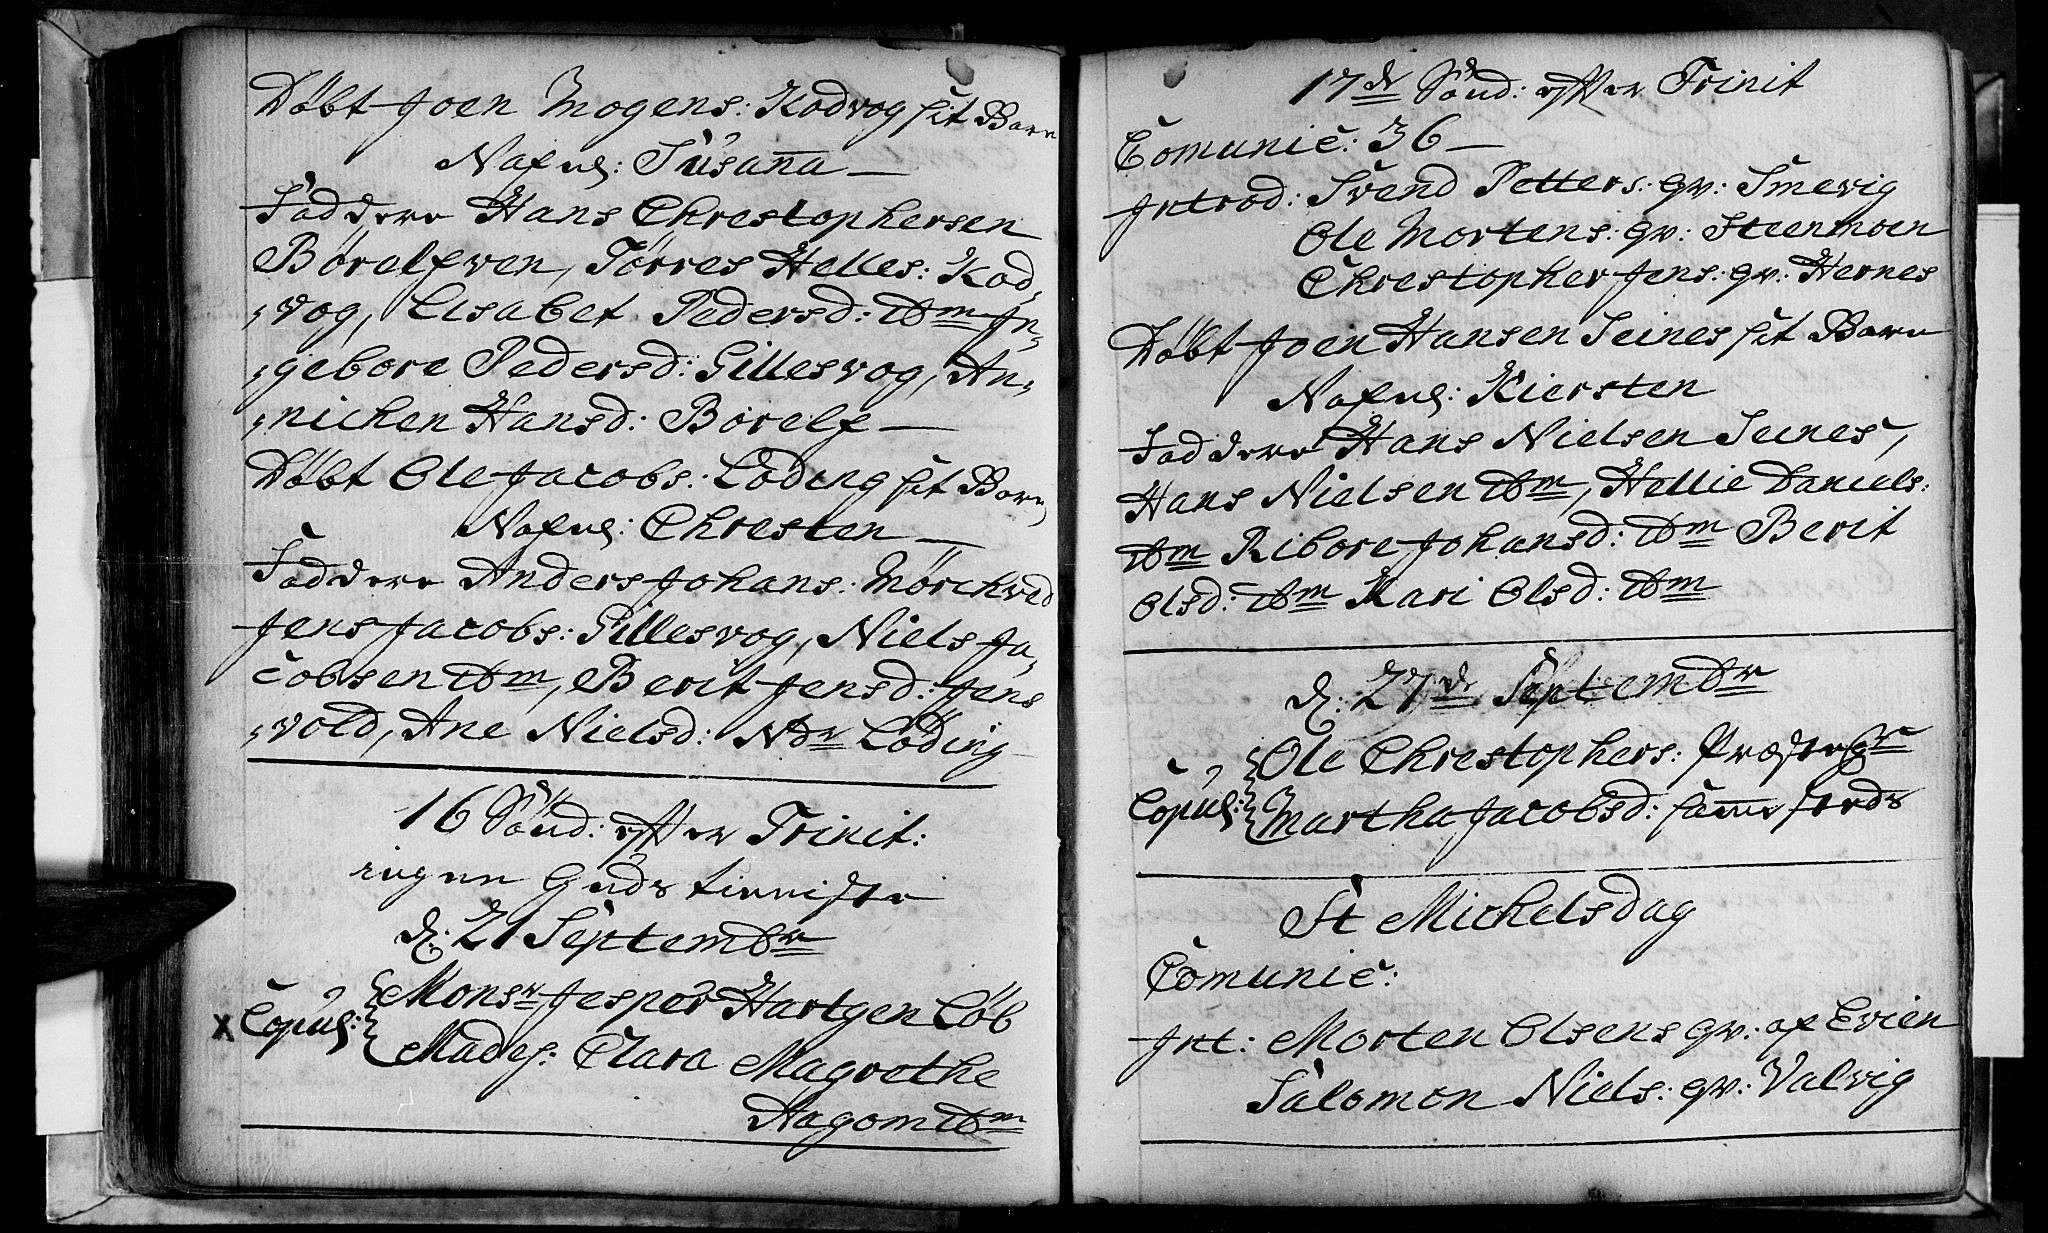 Døbt Joen Mogens: Kodvog sit Barn
Nafnl: Susana —
Faddere Hans Chrestophersen
Børelfven, Tørres Helles: Kod-
-vog, Elsabet Pedersd: ibm In-
-gebore Pedersd: Gillesvog, An-
-nichen Hansd: Børelf —
Døbt Ole Jacobs: Løding sit Barn
Nafnl: Chresten —
Faddere Anders Johans: Mørchved
Jens Jacobs: Gillesvog, Niels Ja-
cobsen ibm, Berit Jensd: Jens
-vold, Ane Nielsd: Ndr Løding
16 Sønd: efter Trinit:
ingen Guds tienniste
d: 21 Septembr
x Copul: Monsr Jesper Hartgen Løb
Madms: Clara Magrethe
Aagom ibm
17de Sønd: efter Trinit
Comunic: 36 —
Introd: Svend Petters: qv: Smevig
Ole Mortens: qv: Steenmoen
Chrestopher Jens: qv: Hernes
Døbt Joen Hansen Seines sit Barn
Nafnl: Kiersten
Faddere Hans Nielsen Seines,
Hans Nielsen ibm, Hellie Daniels:
ibm Ribore Johansd: ibm Berit
Olsd: ibm Kari Olsd: ibm
d: 27de Septembr
Copul: Ole Chrestophers: Præstegr
Martha Jacobsd: samesteds
St Michelsdag
Comunic:
Int: Morten Olsens qv: af Evien
Salomon Niels: qv: Valvig